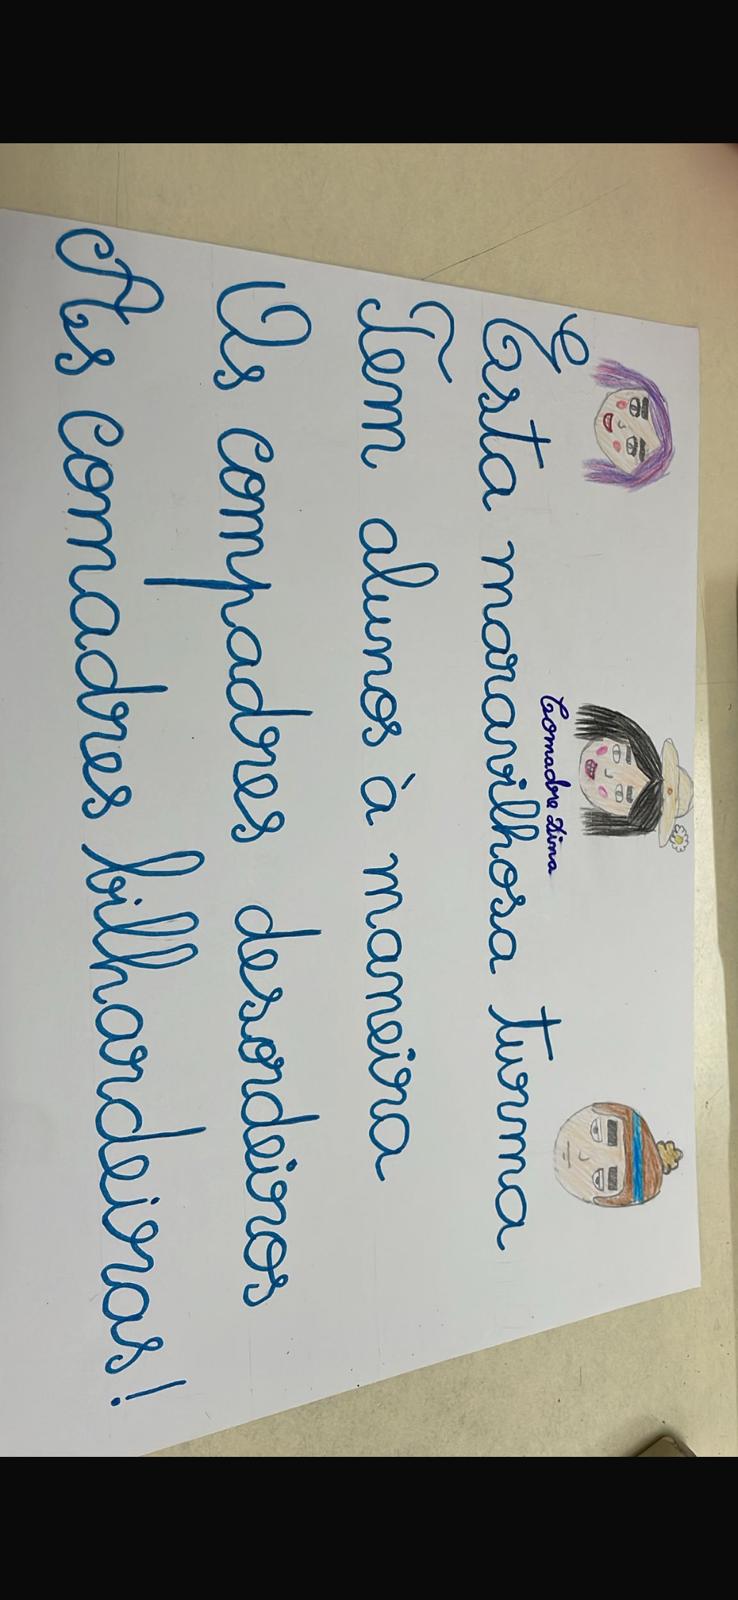 Comadre Dina
Esta maravilhosa turma
Tem alunos à maneira
Os compadres desordeiros
As comadres bilhardeiras!